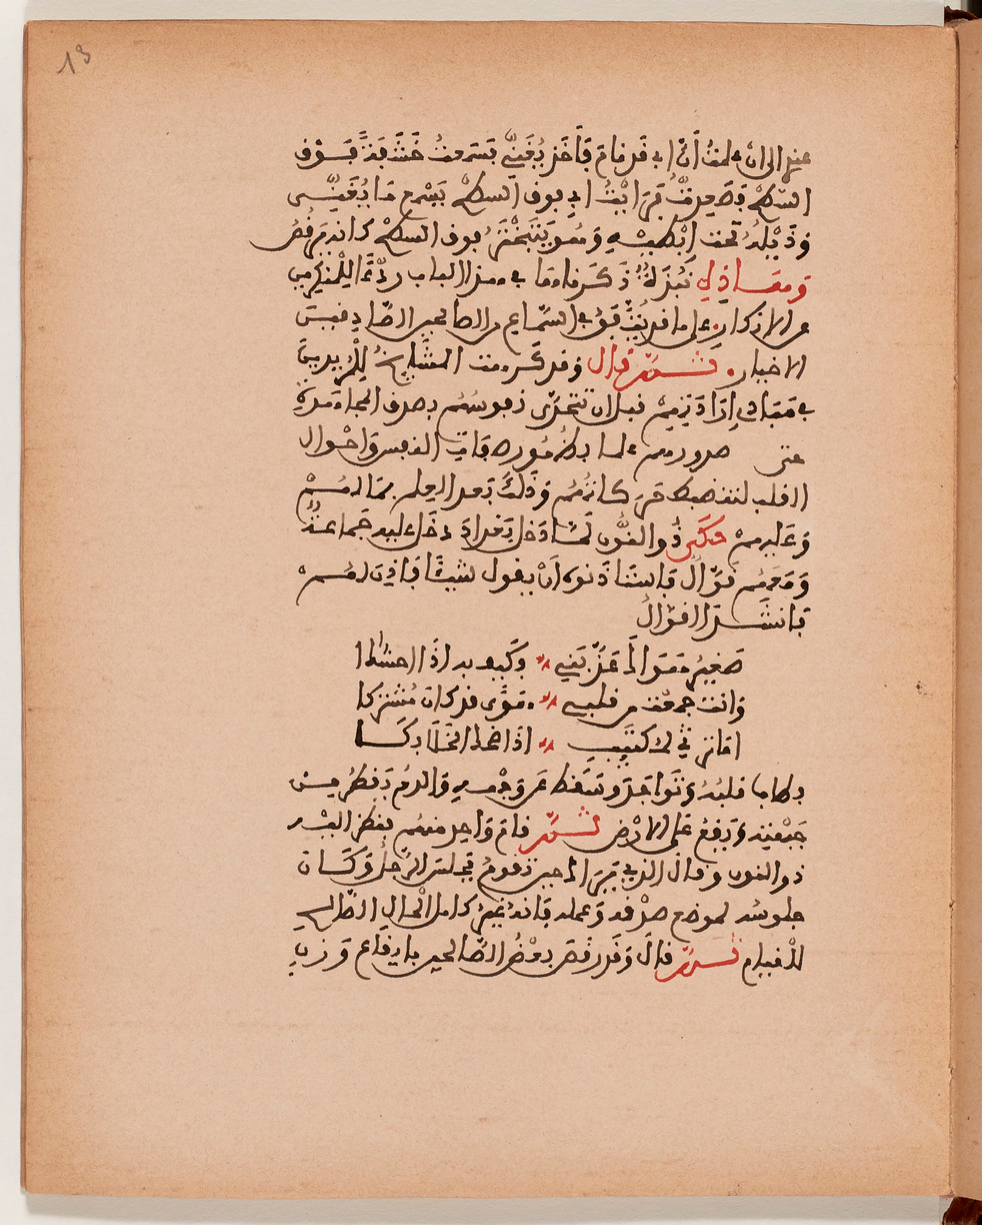 13
عنه الى ان علمت أنّ ابى قد نام فَأخذ يُغَنّى فسَمعتُ خَشَفَةً فَوْق
السّطْح فصَعِدتُّ فرَايْتُ ابى فوق السطْح يَسْمع مَا يُغَنّـى
وَذَيْلُهُ تحت اِبْطِهِ وَهُو يَتَبَخْتَرُ فوق السطْح كانه يَرْقُصُ
وَمعَـاذى نُبْذَةٌ ذَكَرناها فى هذا الباب ردْعًا لِلْمُنكِرِين
من الاذكار على ما قد يُتّفَقُ فى السّماع من الصالحين الصّادِقِينَ
الاخيار. ثــمّ قال وَقد كَرهت المشَايخُ لِلْمُريدِينَ
فى مَبَادى اِرَادَتِهِمْ قبل ان تتحَرّى نفوسُهُم بصدف المجاهَدة
حتى
القلب لتنضبط حَرَكاتُهُم وَذلك بَعد العِلم بمَا لَهُـمْ
وَعَليْهِمْ حَكى ذُو النُّون لمّا دَخل بَغداد دخَل عَليه جَماعَـةٌ
وَمَعهُم قوّالٌ فَاستَاذنوه اَنْ يقول شيئًا فَاذِنَ لهُـمْ
فَانشَــدَ القوّالُ
صَغِيرُ هَوَاكَ عَذّبَنِى وكَيف به اذَا احتنكا
وَانتَ جمعْتَ من قلبـى هَوًى قد كان مُشتركا
اما ترثى لمكتَئِبٍ اذَا ضحك الخَلى بكَــا
فطاب قلبُهُ وَتَوَاجَدَ وسَقط عَلى وَجْهِهِ وَالدمُ يَقطُرُ مِـن
جَبْهتِهِ وَيَقعُ عَلى الارْض ثــمّ قام وَاحِد منهُم فنظر اليْـه
ذو النون وقال الذى يَرَاك حين تقومُ فجلسَ الرّجلُ وَكَـانَ
جلوسُه لموضع صدْقه وَعلمه بَانهُ غيْرُ كامل الحَال الصّالح
للْقيام ثــمّ قالَ وَقد رَقَصَ بعْضُ الصّالحين بايقاع وَ وَزن